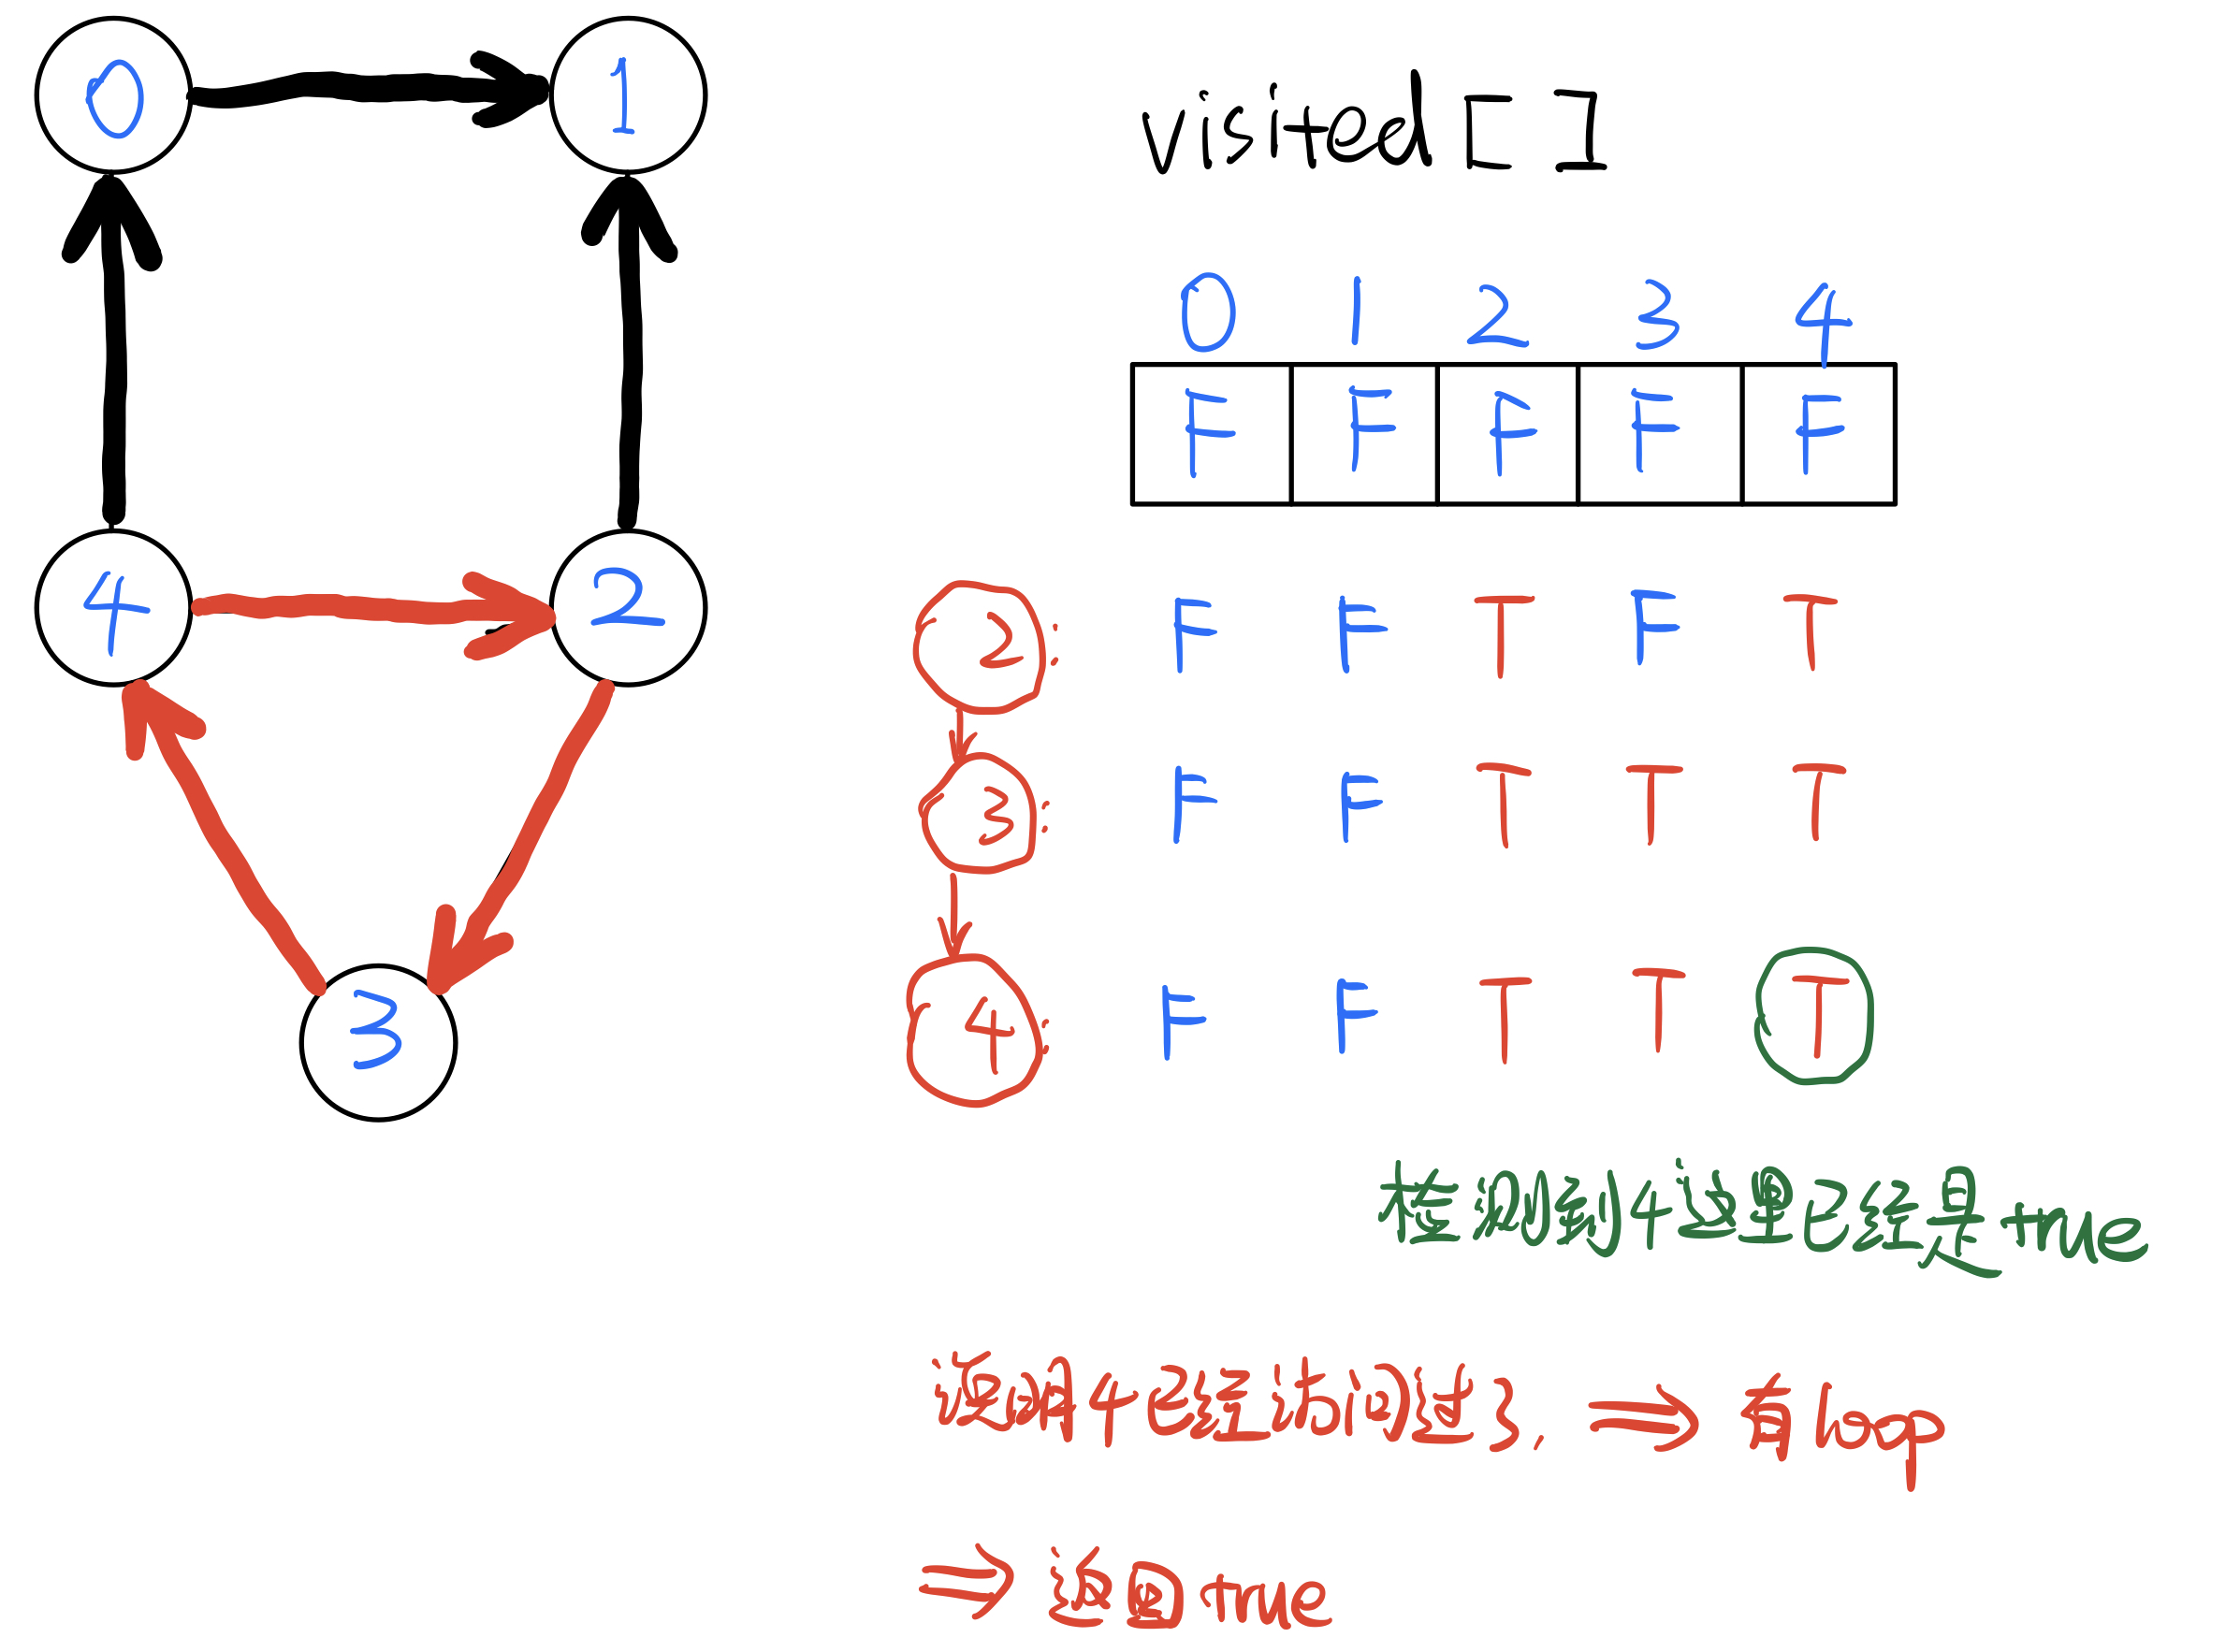 0 1
visited [ ]
0 1 2 3 4
F F F F F
4 2
2: F F T F T
3: F F T T T
3
4: F F T T T
检测到4这里已经是true
说明4已经访问过了, ⇒ 有loop
⇒ 返回true